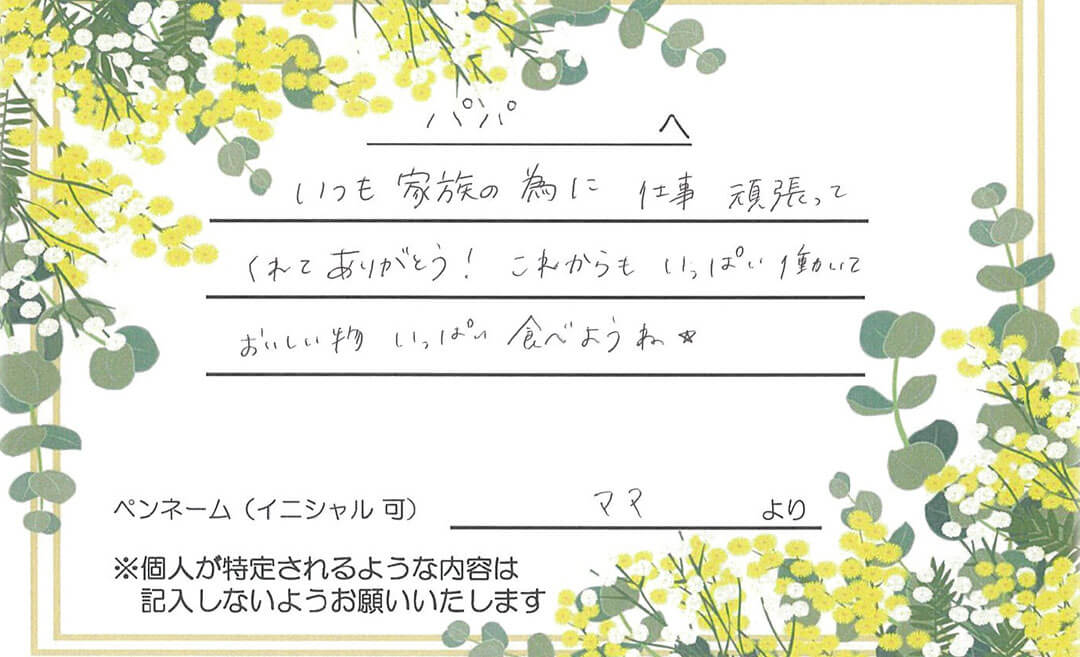 パパ へ
いつも 家族の 為に 仕事 頑張って
くれて ありがとう! これからも いっぱい 働いて
おいしい物 いっぱい 食べようね★
ペンネーム(イニシャル 可) ママ より
※個人が特定されるような内容は
記入しないようお願いいたします